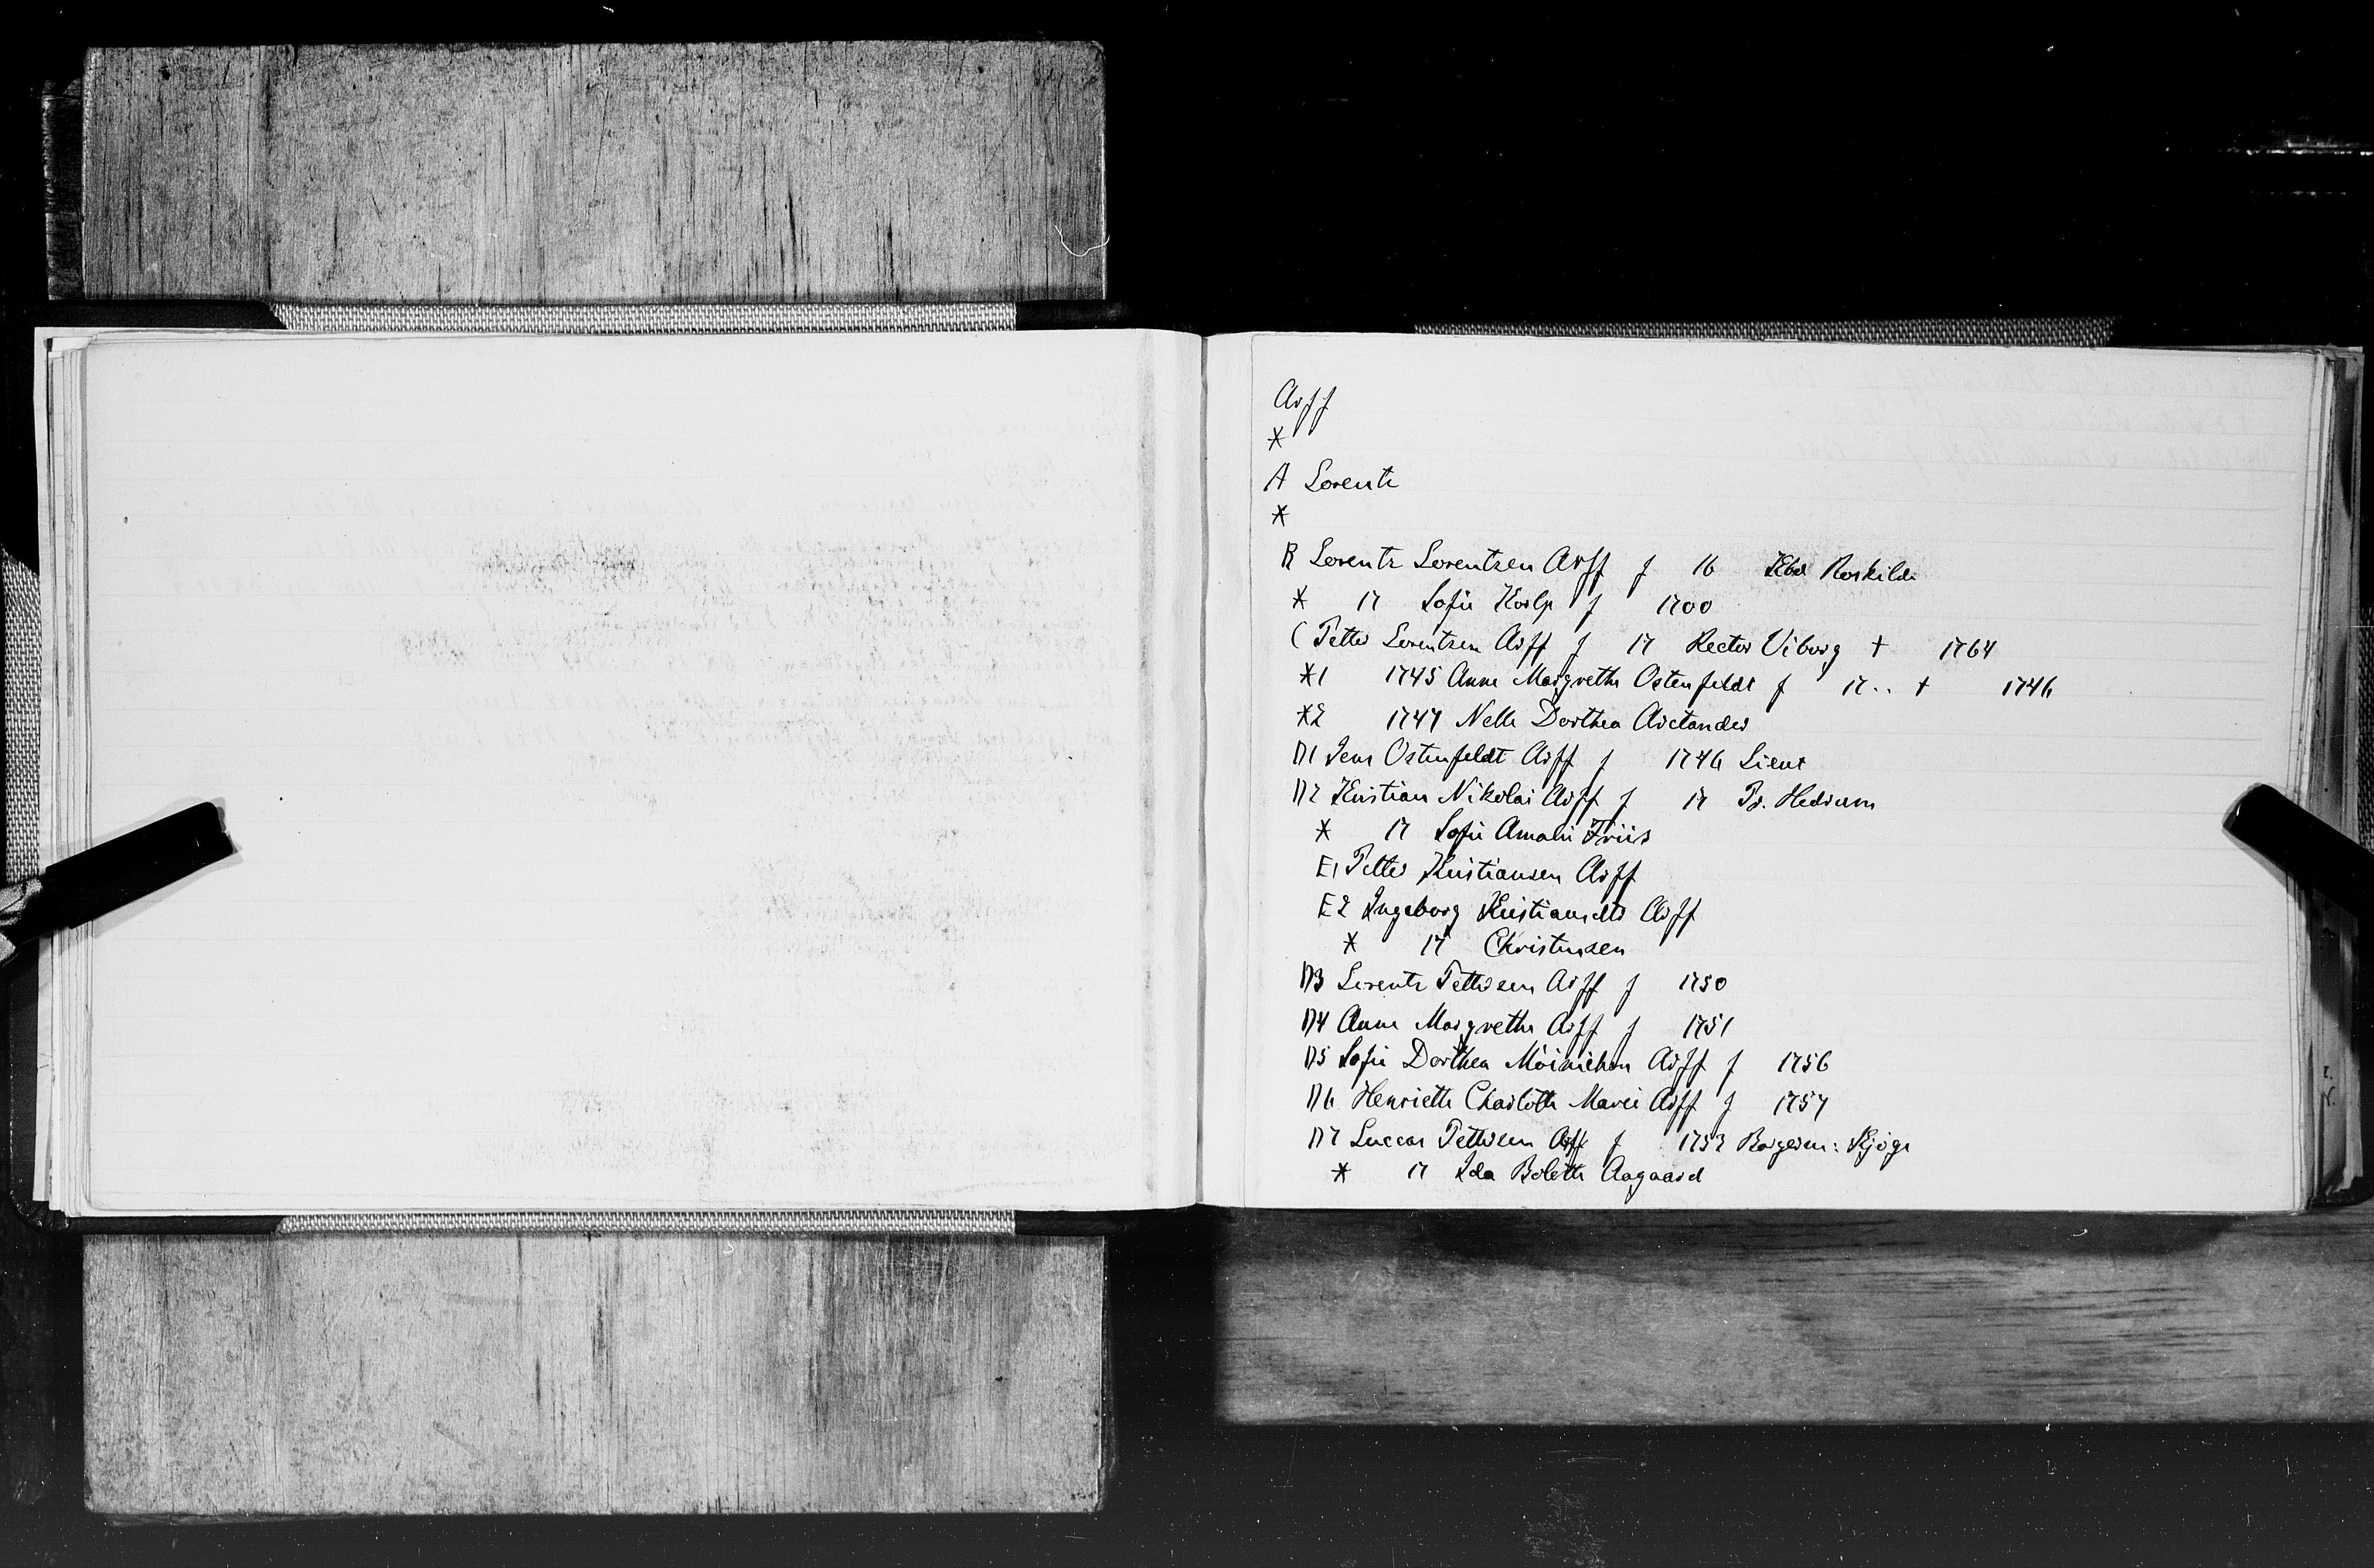 Arff
*
A Lorentz
*
B Lorentz Lorentzen Arff f 16 Kbd Roskilde
* 17 Sofie f 1700
C Petter Lorentzen Arff f 17 Rector Viborg † 1764
*1 1745 Anne Margrethe Ostenfeldt f 17.. † 1746
*2 1747 Nelle Dorthea Arctander
D1 Jens Ostenfeldt Arff f 1746 Lieut
D2 Kristian Nikolai Arff f 17 Pr. Hedrum
* 17 Sofie Amalie Friis
E1 Petter Kristiansen Arff
E2 Ingeborg Kristiansdtr Arff
* 17 Christensen
D3 Lorentz Pettersen Arff f 1750
D4 Anne Margrethe Arff f 1751
D5 Sofie Dorthea Möinichen Arff f 1756
D6 Henriette Charlotte Marie Arff f 1757
D7 Luccas Pettersen Arff f 1753 Borgerm: Kjöge
* 17 Ida Bolette Aagaard